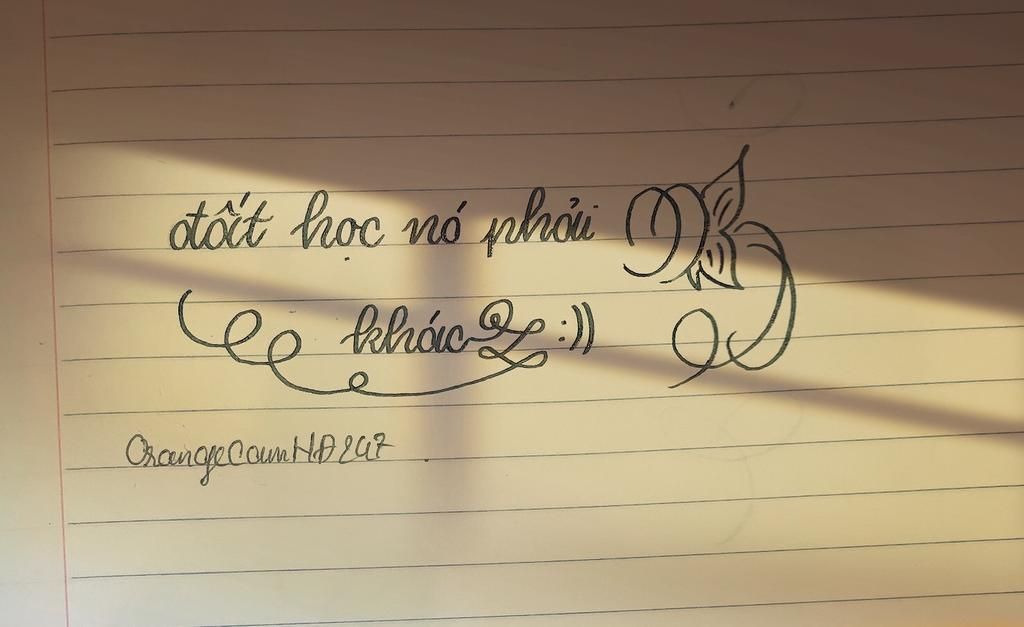 đốt học nó phải
khác :))
OrangeCamHĐ247